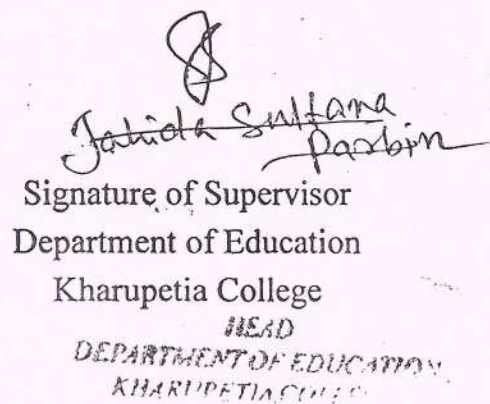 Jahida Sultana
Parbin
Signature of Supervisor
Department of Education
Kharupetia College
HEAD
DEPARTMENT OF EDUCATION
KHARUPETIA